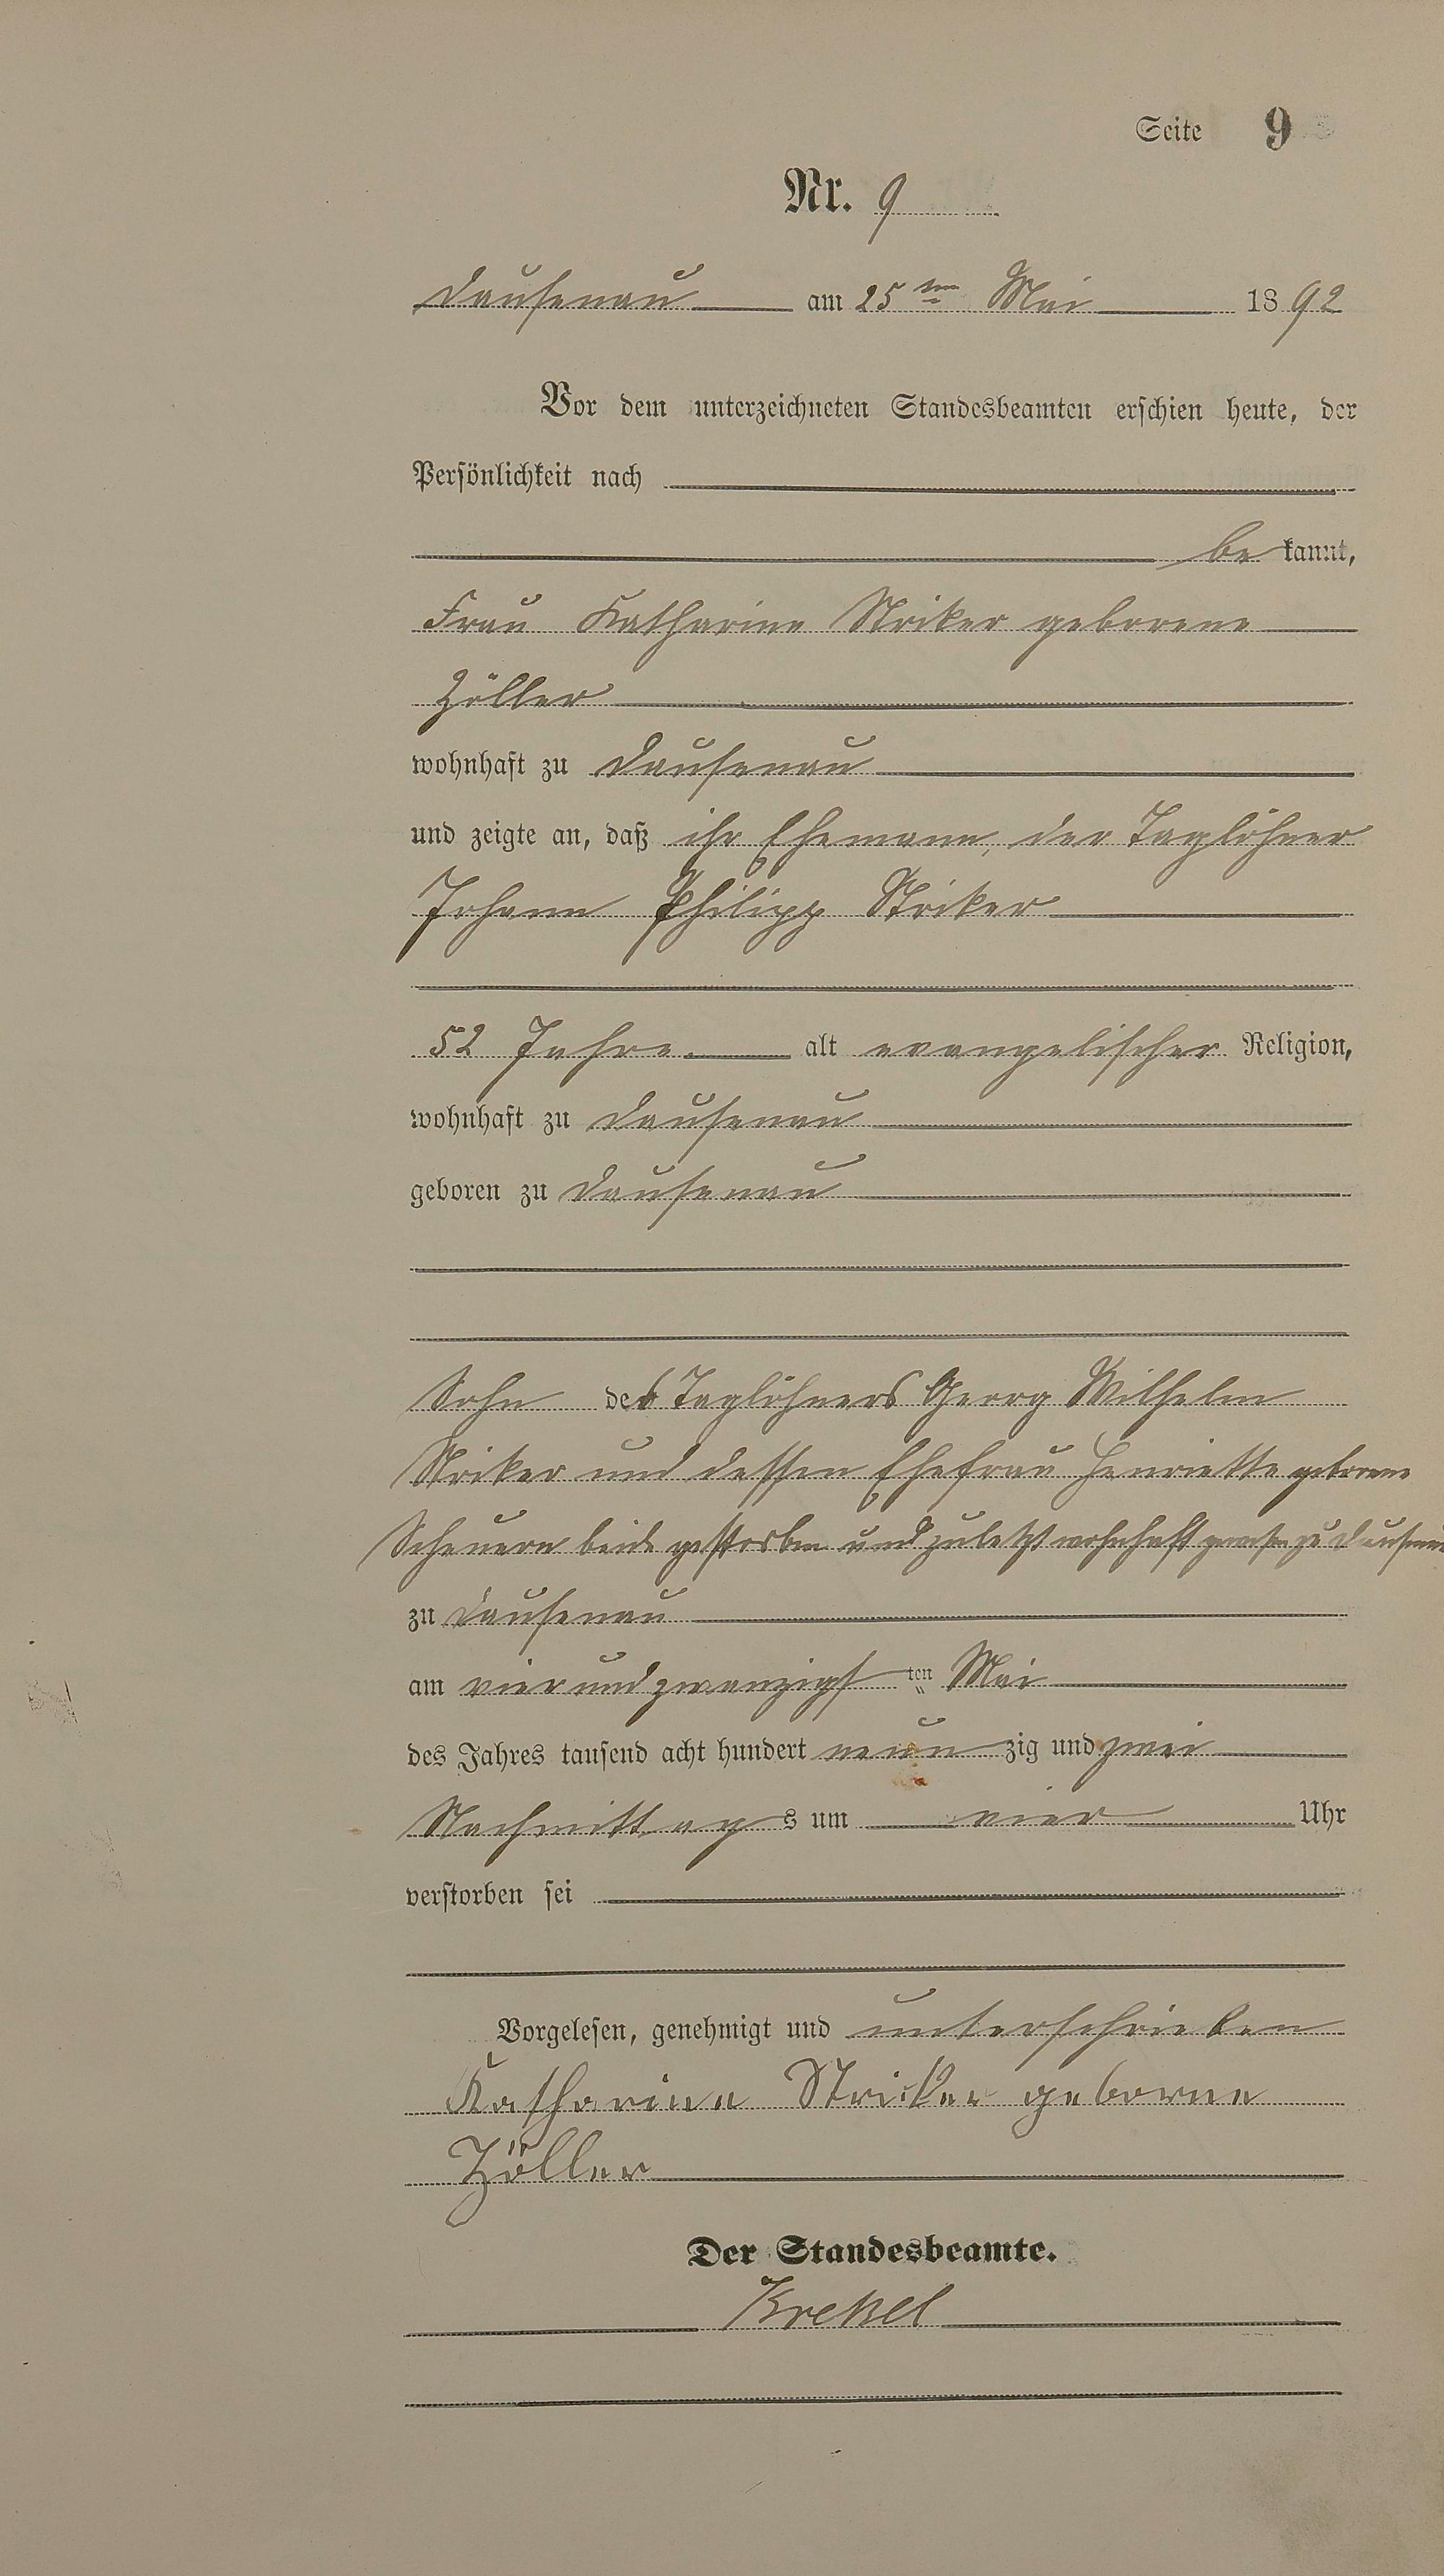 Seite 9
Nr. 9
Dausenau am 25ten Mai 1892
Vor dem unterzeichneten Standesbeamten erschien heute, der
Persönlichkeit nach
bekannt,
Frau Katharina Striker geborene
Zöller
wohnhaft zu Dausenau
und zeigte an, daß ihr Ehemann, der Taglöhner
Johann Philipp Striker
52 Jahre alt evangelischer Religion,
wohnhaft zu Dausenau
geboren zu Dausenau
Sohn des Taglöhners Georg Wilhelm
Striker und dessen Ehefrau Henriette geborene
Scheuern beide gestorben und zuletzt wohnhaft gewesen zu Dausenau
zu Dausenau
am vierundzwanzigsten Mai
des Jahres tausend acht hundert neunzig und zwei
Nachmittags um vier Uhr
verstorben sei
Vorgelesen, genehmigt und unterschrieben
Katharina Striker geborne
Zöller
Der Standesbeamte.
Krekel